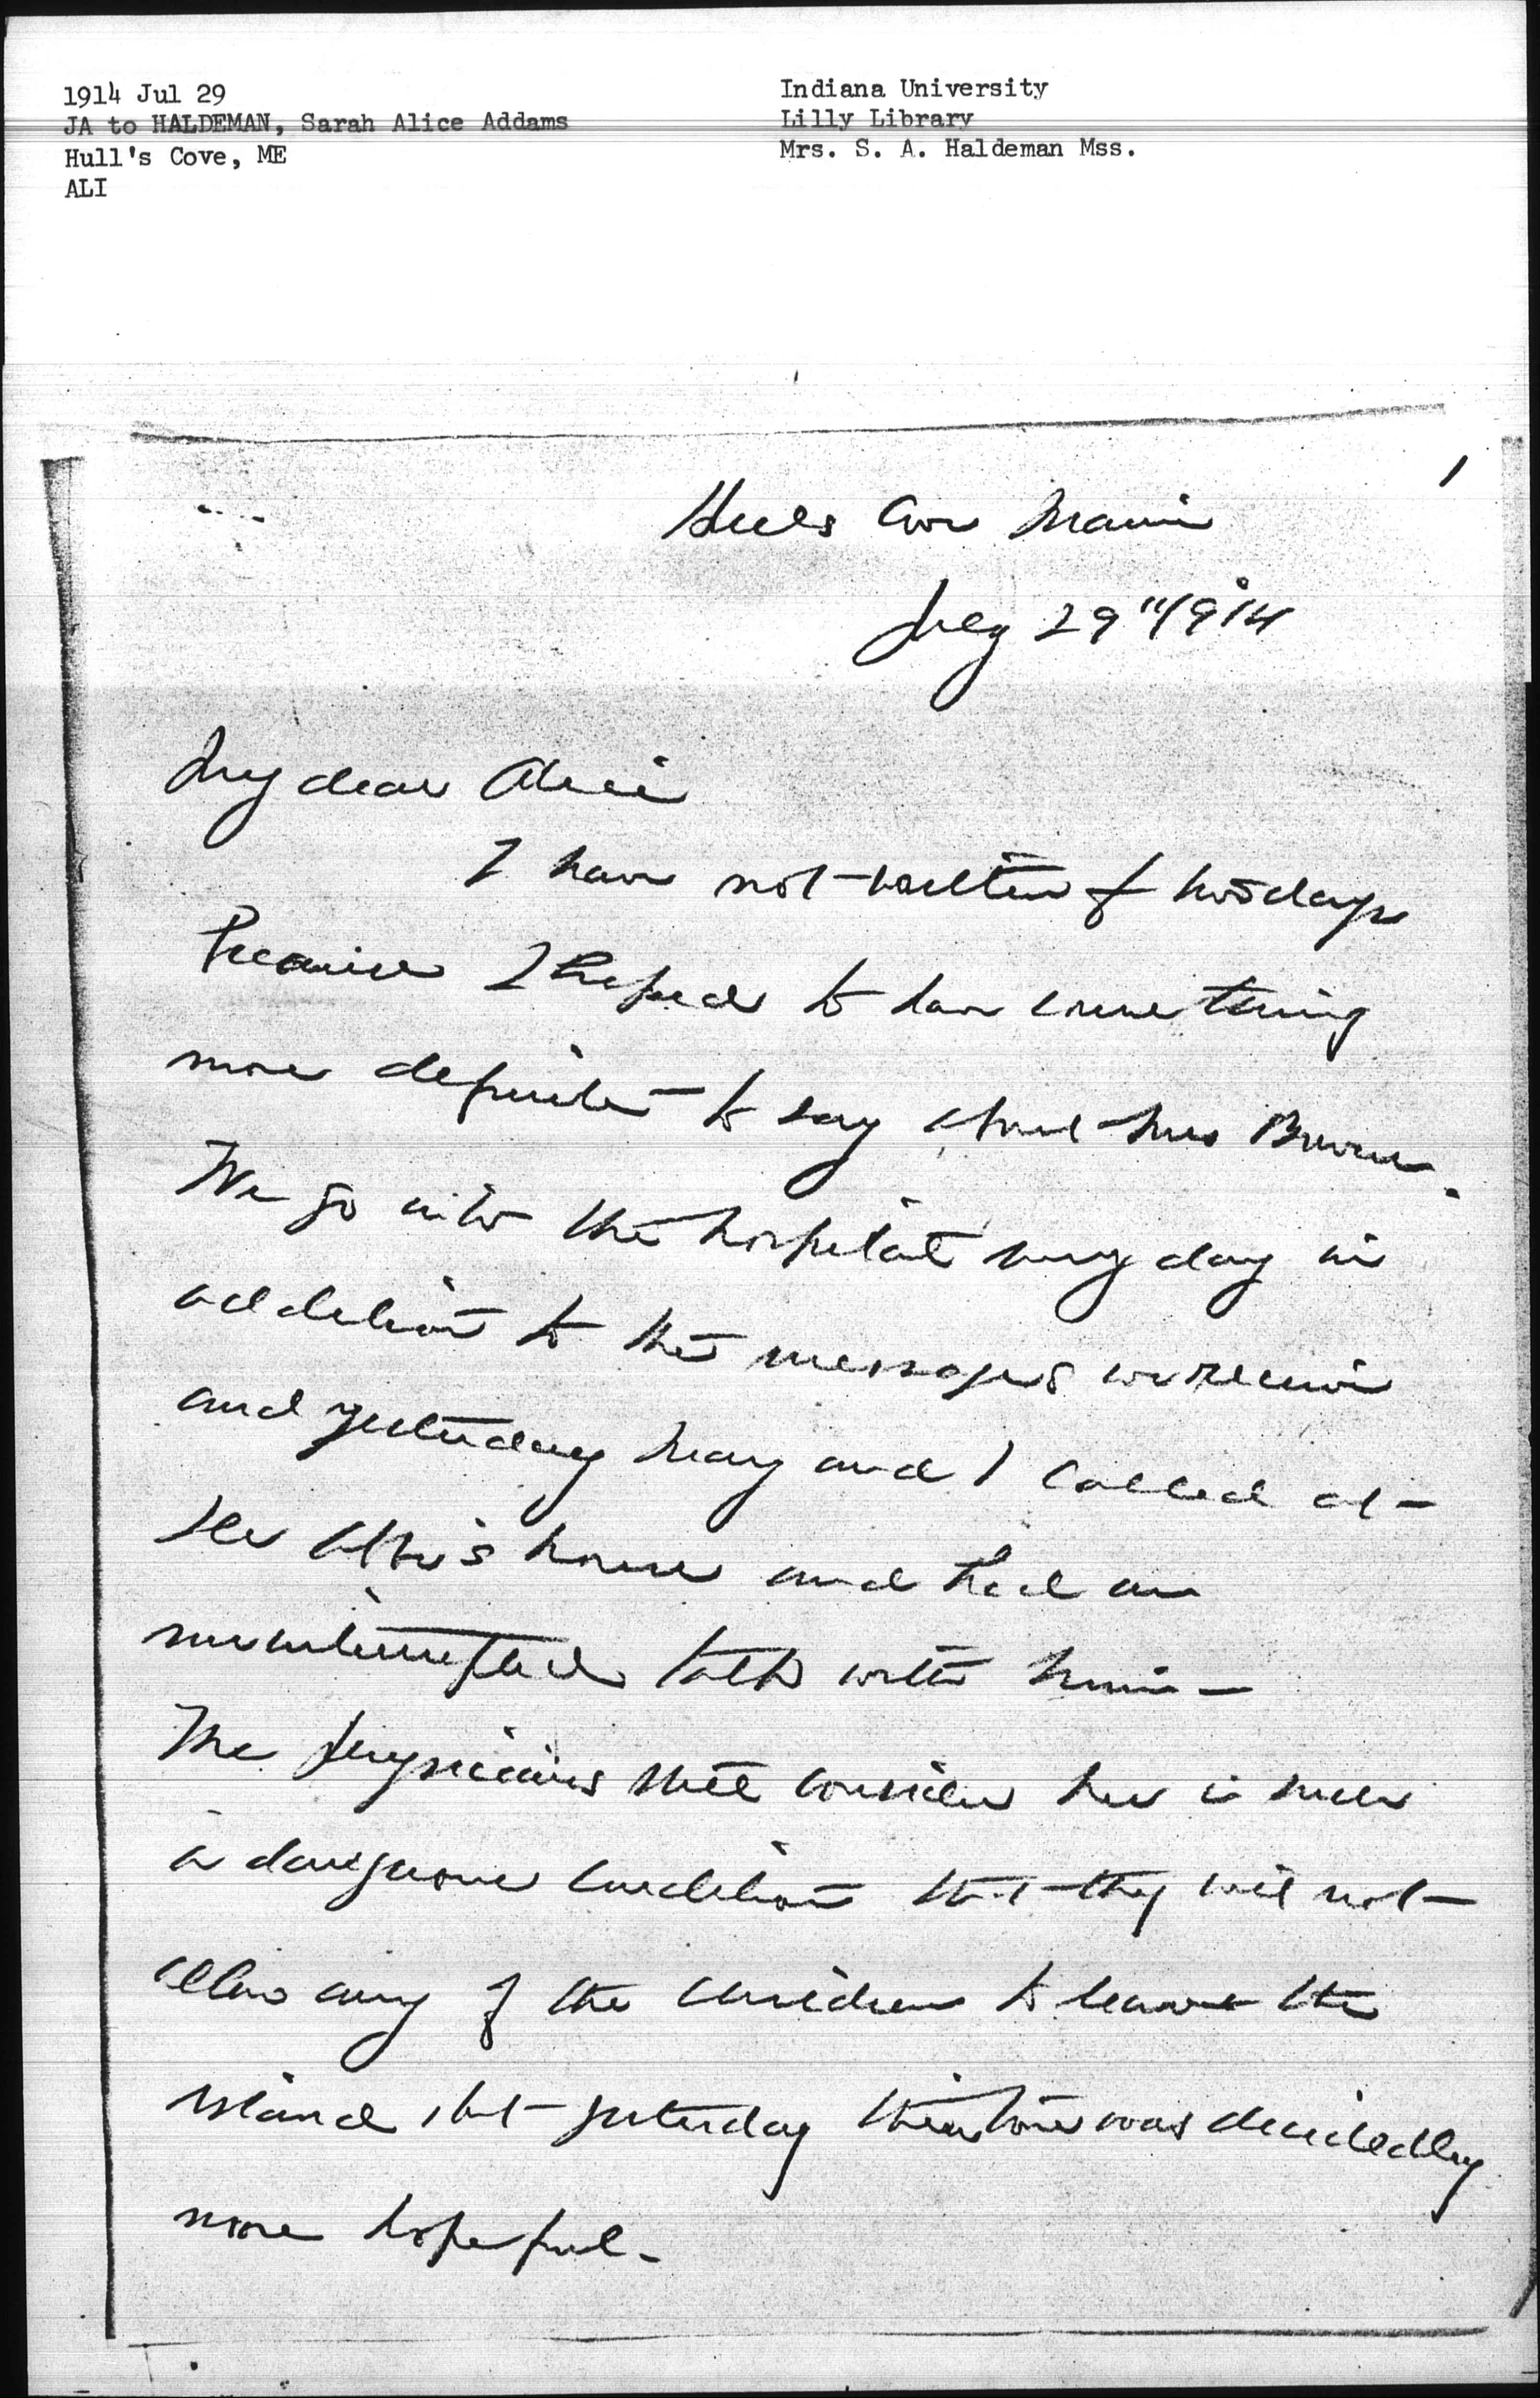 1914 Jul 29
JA to HALDEMAN, Sarah Alice Addams
Hull's Cove, ME
ALI
Indiana University
Lilly Library
Mrs. S. A. Haldeman Mss.
1
Hulls Cove Maine
July 29" 1914
My dear Alice
I have not written for two days
because I hoped to have something
more definite to say about Mrs Bowen.
We go into the hospital every day in
addition to the messages we receive
and yesterday Mary and I called at
Dr house and had an
uninterrupted talk with him —
The physicians still consider her in such
a dangerous condition that they will not
allow any of the children to leave the
island, but yesterday their tone was decidedly
more hopeful —